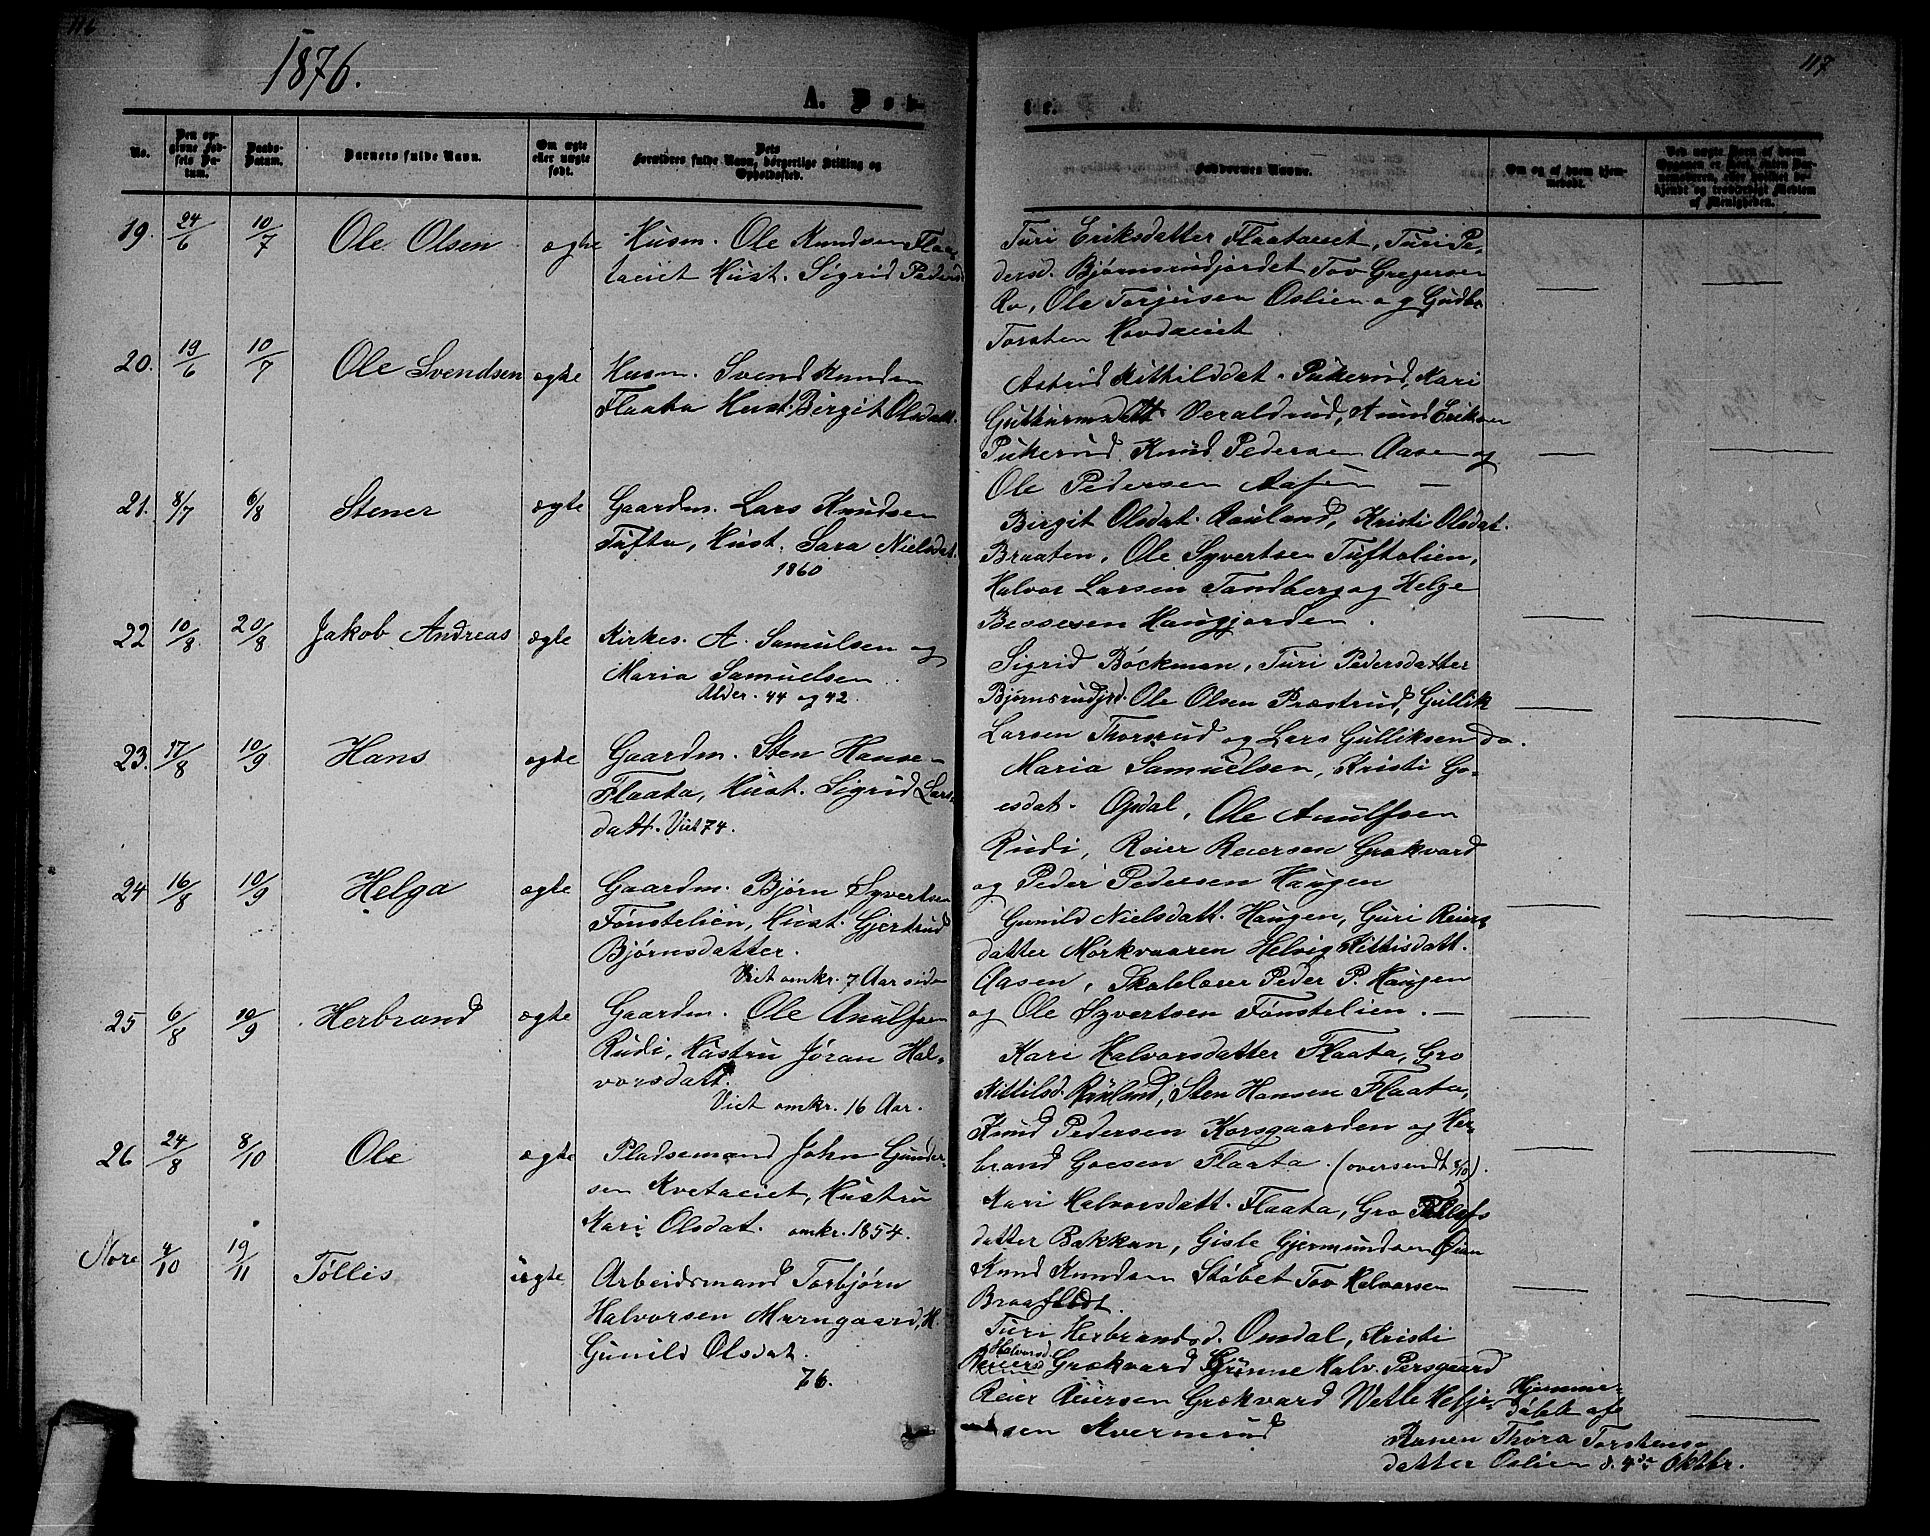 116
1876.
A. Døb-
No.
Den opgivne Fødsels Datum.
Daabs-Datum.
Barnets fulde Navn.
Om ægte eller uægte født.
Forældres fulde Navn, borgerlige Stilling og Opholdssted.
19. 24/6 10/7 Ole Olsen ægte Husm. Ole Knudsen Flaa-
taeiet Hust. Sigrid Pedersd
20. 19/6 10/7 Ole Svendsen ægte Husm. Svend Knudsen
Flaata Hust. Birgit Olsdatt.
21. 8/7 6/8 Stener ægte Gaardm. Lars Knudsen
Tufto, Hust. Sara Nielsdat.
1860
22 10/8 20/8 Jakob Andreas ægte Kirkes. A. Samulsen og
Maria Samuelsen.
Alder. 44 og 42.
23. 17/8 10/9 Hans ægte Gaardm. Sten Hanse-
Flaata, Hust. Sigrid Lars-
datt. Viet 74.
24 16/8 10/9 Helga ægte Gaardm. Bjørn Syvertsen
Fønstelien, Hust. Gjertrud
Bjørnsdatter.
Viet omkr. 7 Aar siden
25 6/8 10/9 Herbrand ægte Gaardm. Ole Anulfsen
Rudi, Hustru Jøran Hal-
vorsdatt.
Viet omkr. 16 Aar.
26 24/8 8/10 Ole ægte Pladsemand John Gunder-
sen Kvetaeiet, Hustru
Kari Olsdat. omkr. 1854.
Nore 4/10 19/11 Tøllis uægte Arbeidsmand Torbjørn
Halvorsen Mærngaard, H.
Gunild Olsdat.
76.
117
te.
Faddernes Navne.
Om og af hvem hjemmedøbt.
Turi Eriksdatter Flaataeiet, Turi Pe-
dersd. Bjørnsrudjordet Tov Gregersen
Ro, Ole Torjeisen Oslien og Gudbr.
Torsten Hovdaeiet.
Astrid Kithilddat. Pukerud, Kari
Gutturmsdatt Veraldrud, Anund Eriksen
Pukerud Knud Pedersen Aasen og
Ole Pedersen Aasen —
Birgit Olsdat. Rauland, Kristi Olsdat.
Braaten, Ole Syvertsen Tuftolien,
Halvor Larsen Tandberg og Helge
Bessesen Haugjorden.
Sigrid Böckman, Turi Pedersdatter
Bjørnsrudjrd. Ole Olsen Præstrud, Gullik
Larsen Thorsrud og Lars Gulliksen do.
Maria Samuelsen, Kristi Go-
esdat. Opdal, Ole Anulfsen
Rudi, Reier Reiersen Grækvard
og Peder Pedersen Haugen
Gunild Nielsdatt. Haugen, Guri Reiers
datter Mørkvaaren Helvig Kittisdatt.
Aasen, Skolelærer Peder P. Haugen
og Ole Syvertsen Fønstelien. —
Kari Halvorsdatter Flaata, Gro
Kittilsd. Rauland, Sten Hansen Flaata,
Knud Pedersen Korsgaarden og Her-
brand Goesen Flaata. (oversendt 8/10).
Kari Halvorsdatt. Flaata, Gro
datter Bakkan, Gisle Gjermundsen Øien
Knud Knudsen Støbet Tov Halvorsen
Braaflodt.
Turi Herbrandsd. Omdal, Kristi
Halvorsd.
Grækvard Grønne Halv. Persgaard
Reier Reiersen Grækvard Vetle Helje-
sen Avermrud
Hjemme-
døbt af
Ranen Thora Torstens-
datter Oslien d. 4de Oktbr.